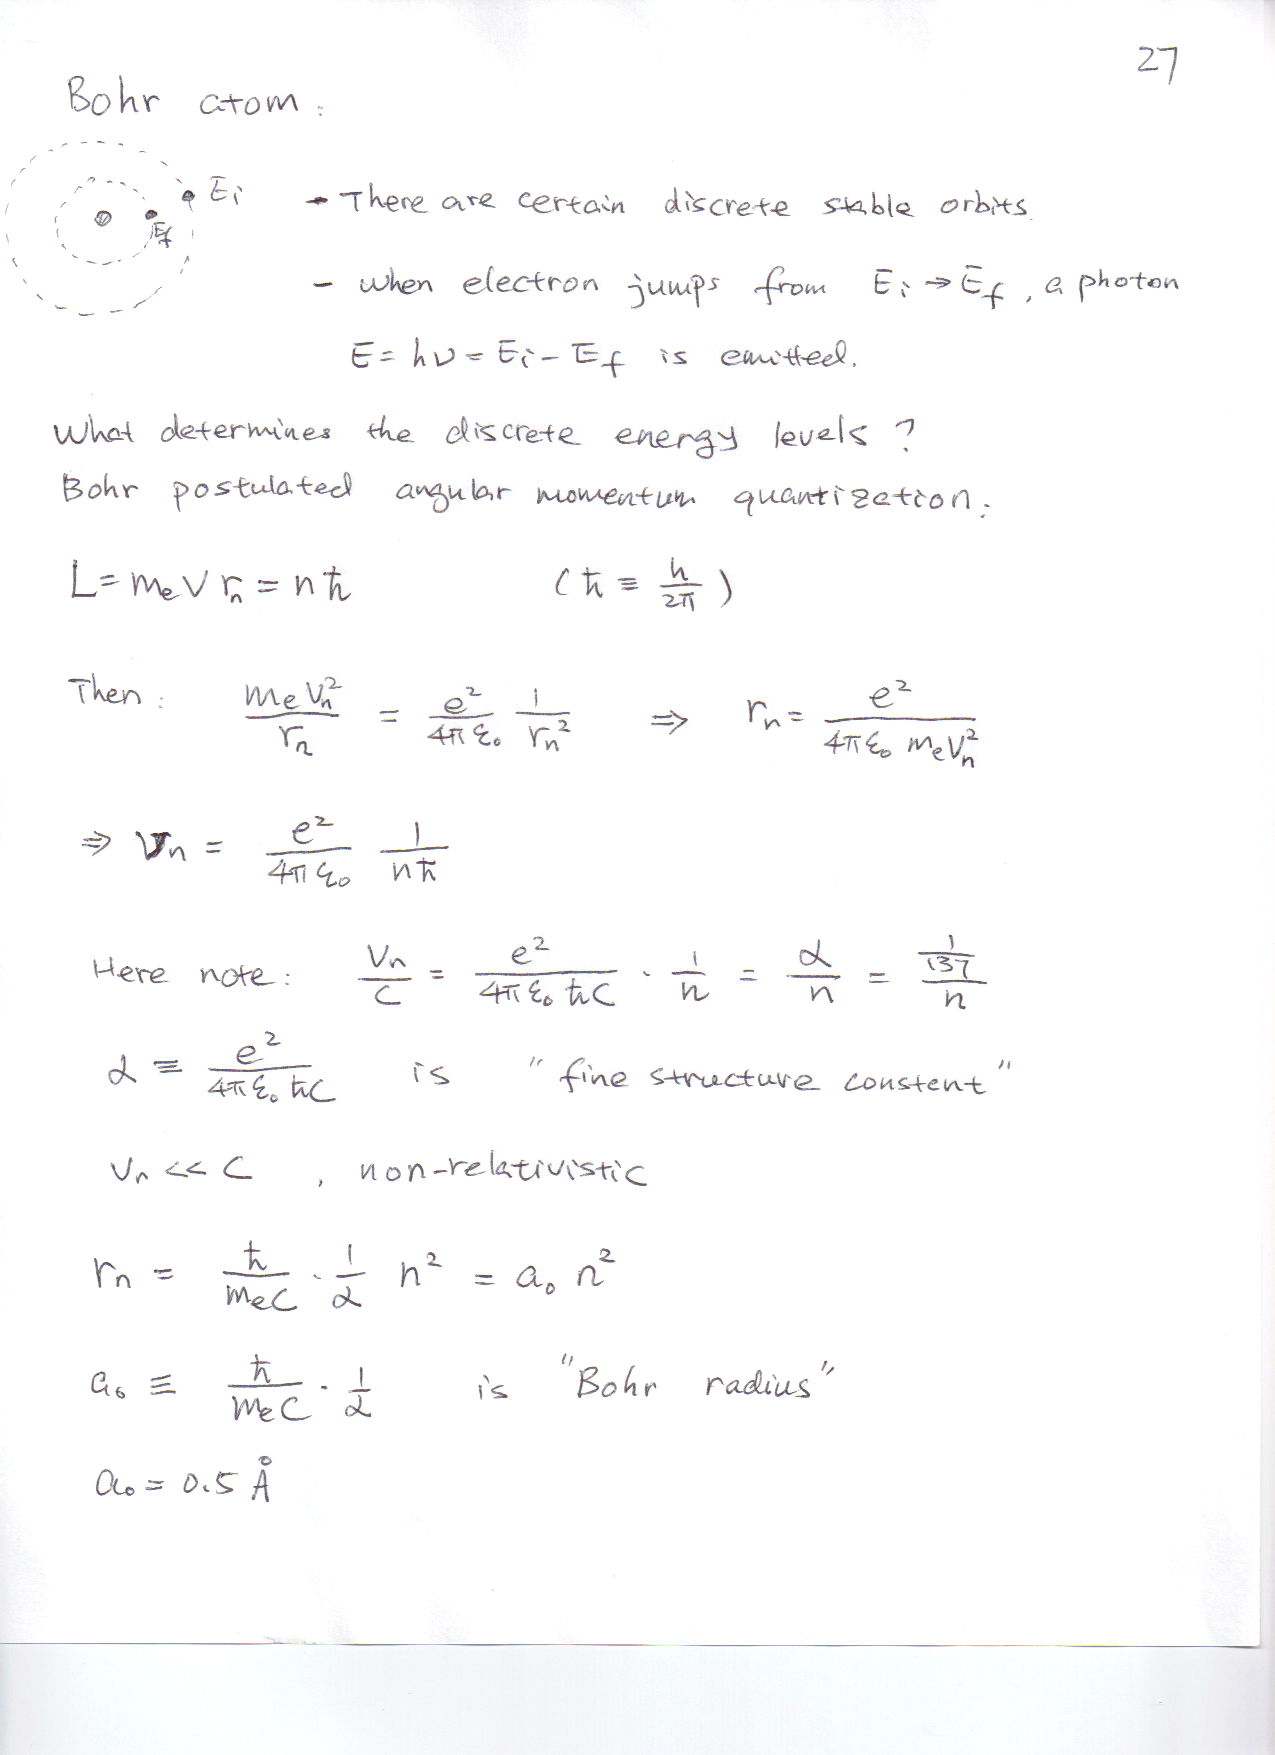 27
Bohr atom:
Ei
Ef
- There are certain discrete stable orbits.
- when electron jumps from Ei → Ef, a photon
E = hν = Ei - Ef is emitted.
What determines the discrete energy levels?
Bohr postulated angular momentum quantization:
L = meV rn = nħ (ħ ≡ h/2π)
Then: meVn²/rn = e²/4πε₀ 1/rn² ⇒ rn = e²/4πε₀ meVn²
⇒ Vn = e²/4πε₀ 1/nħ
Here note: Vn/C = e²/4πε₀ ħC · 1/n = α/n = 1/137/n
α ≡ e²/4πε₀ ħC is "fine structure constent"
Vn << C, non-relativistic
rn = ħ/meC · 1/α n² = a₀ n²
a₀ ≡ ħ/meC · 1/α is "Bohr radius"
a₀ = 0.5 Å